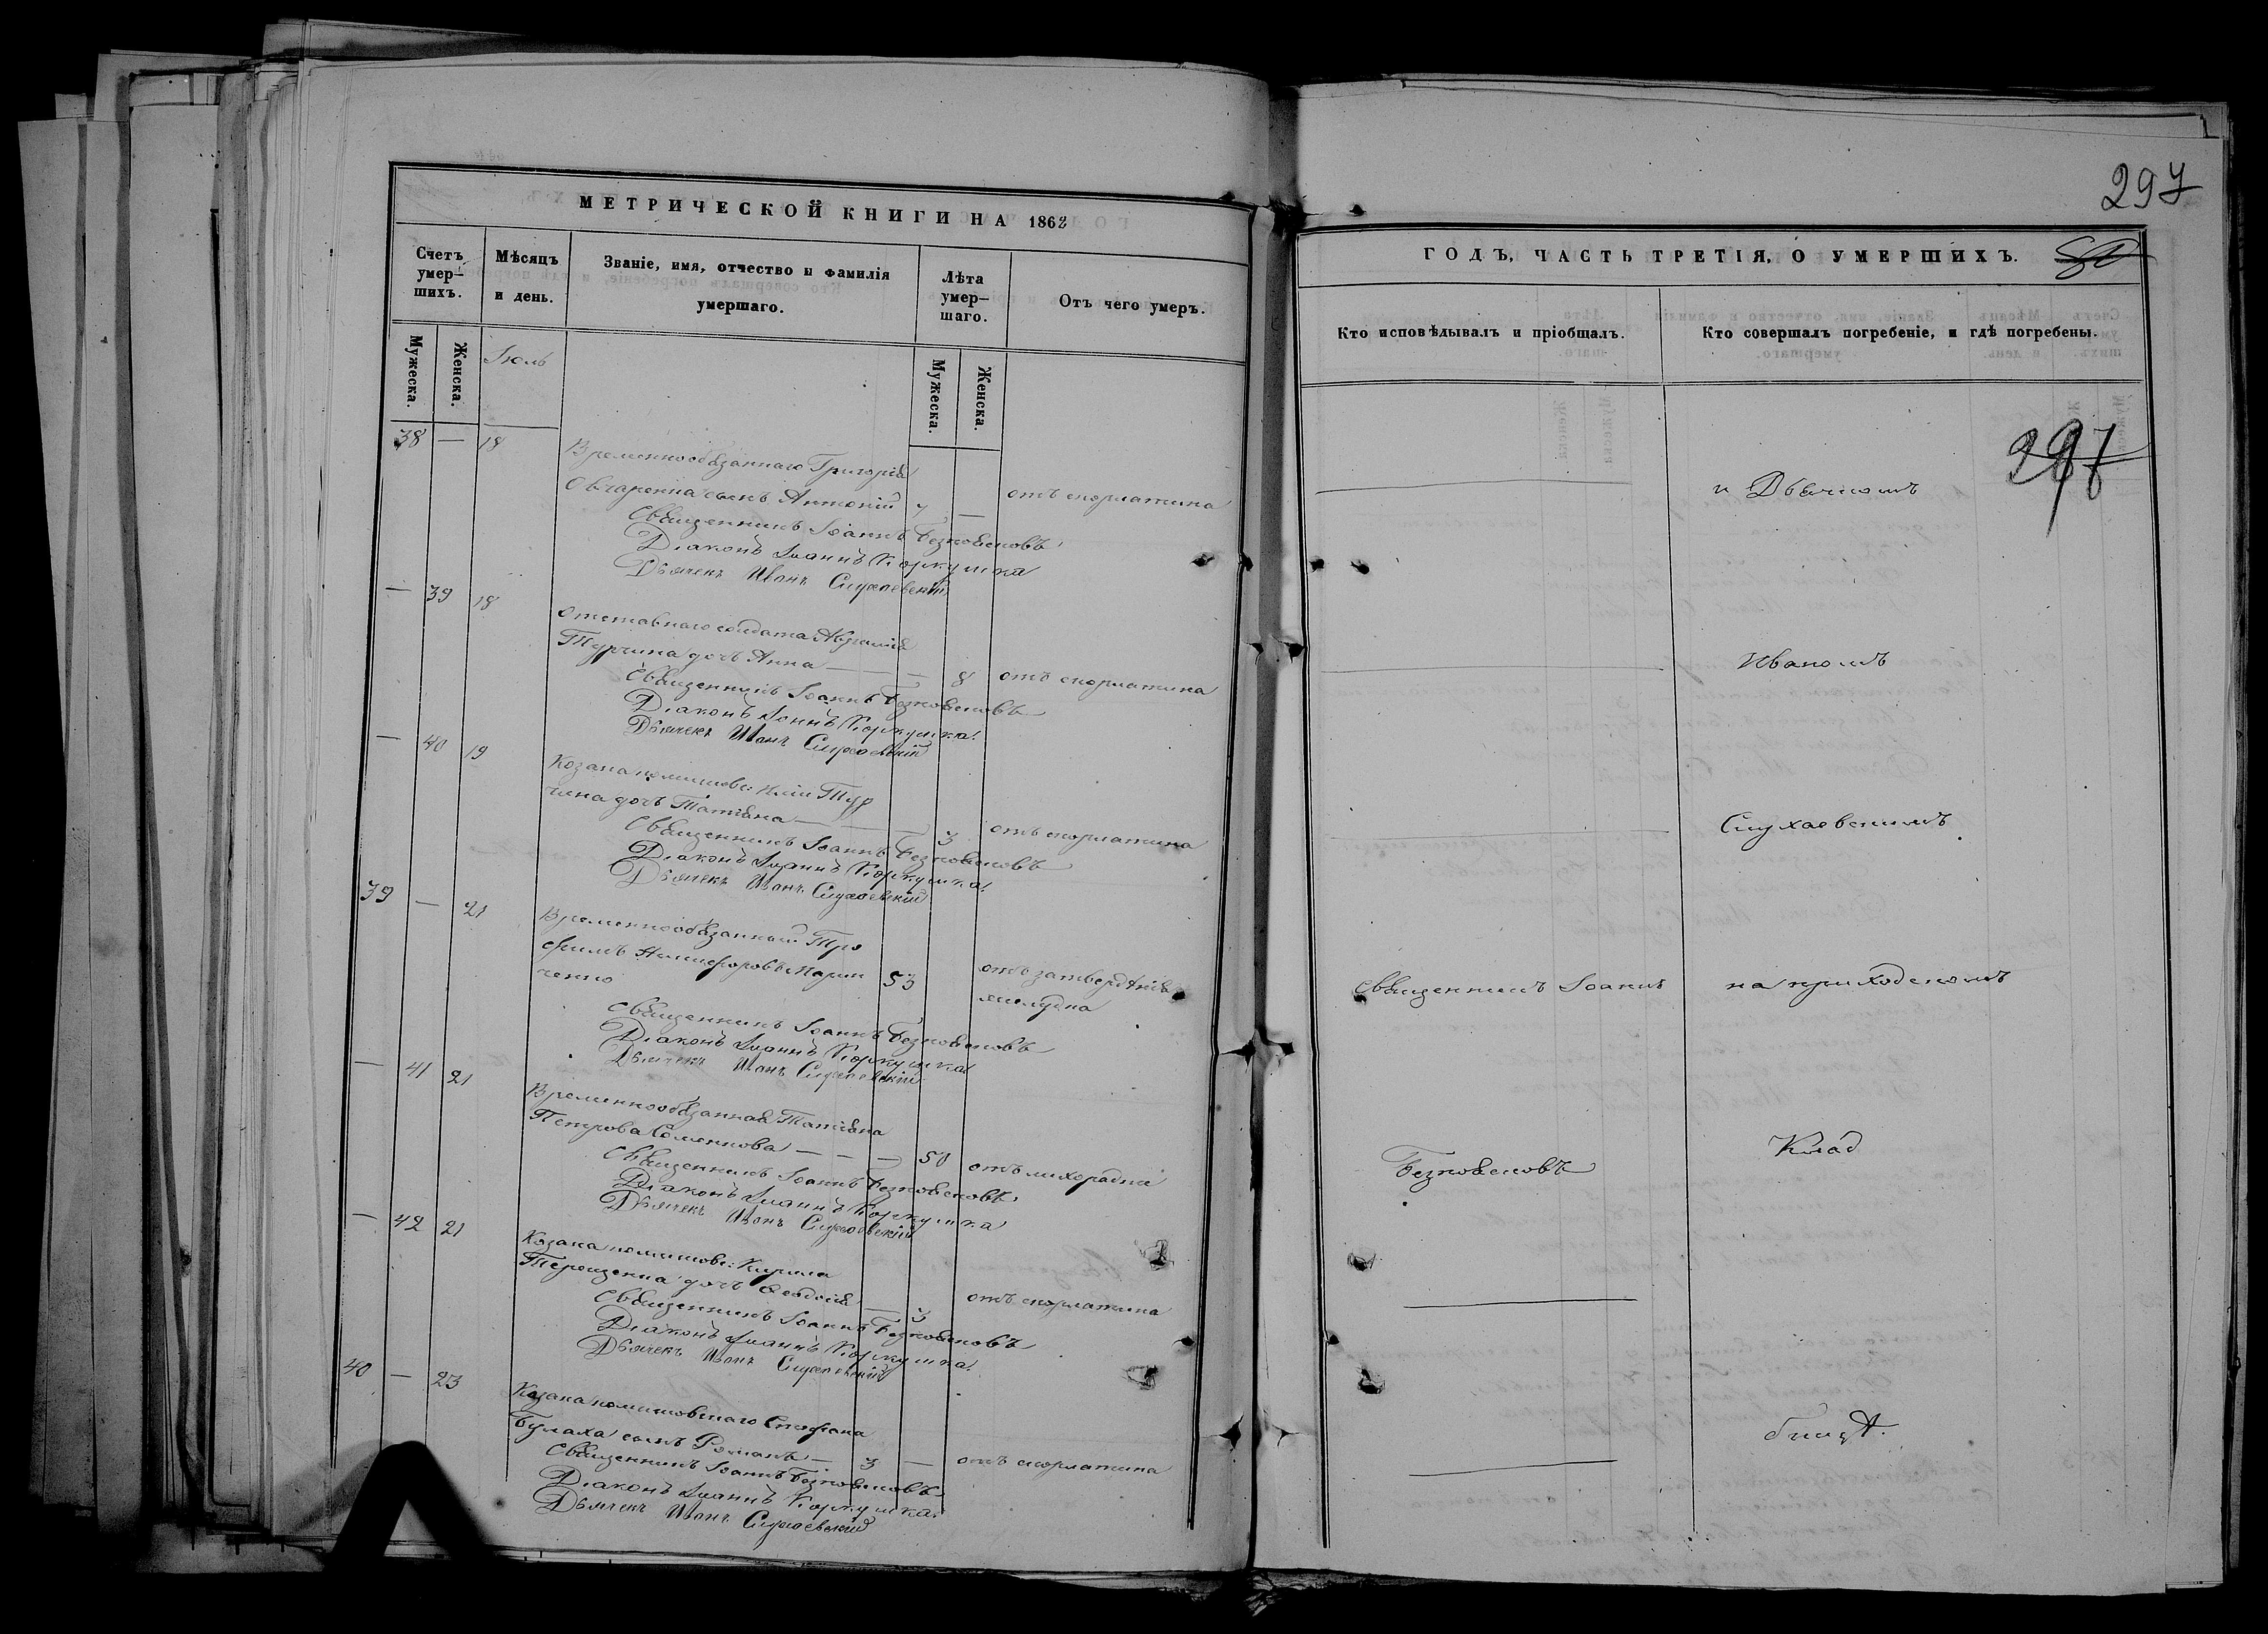 МЕТРИЧЕСКОЙ КНИГИ НА 1862
Счетъ умер-шихъ.
Мѣсяцъ и день.
Званіе, имя, отчество и фамилія умершаго.
Лѣта умер-шаго.
Отъ чего умеръ.
Мужеска.
Женска.
Іюль
Мужеска.
Женска.
38 — 18
Временнообязаннаго Григорія
Овчаренка сынъ Антоній 7 — отъ скорлатина
Священникъ Іоаннъ Безповсковъ
Діаконъ Іоаннъ Коркушка
Дьячекъ Иванъ Слухаевскій
— 39 18
Отставнаго солдата Аврамія
Турчина дочь Анна — — 8 отъ скорлатина
Священникъ Іоаннъ Безповсковъ
Діаконъ Іоаннъ Коркушка
Дьячекъ Иванъ Слухаевскій
— 40 19
Козака Иліи Тур
чина дочь Татіана — 3 отъ скорлатина
Священникъ Іоаннъ Безповсковъ
Діаконъ Іоаннъ Коркушка
Дьячекъ Иванъ Слухаевскій
39 — 21
Временнообязанный Тро
фимъ Никифоровъ Марин
ченко 53 отъ затвердѣнія
желудка
Священникъ Іоаннъ Безповсковъ
Діаконъ Іоаннъ Коркушка
Дьячекъ Иванъ Слухаевскій
— 41 21
Временнообязанная Татіана
Петрова Семенова — — — 50 отъ лихорадки
Священникъ Іоаннъ Безповсковъ
Діаконъ Іоаннъ Коркушка
Дьячекъ Иванъ Слухаевскій
— 42 21
Козака Кирила
Терещенка дочь Ѳеодосія — 3 отъ скорлатина
Священникъ Іоаннъ Безповсковъ
Діаконъ Іоаннъ Коркушка
Дьячекъ Иванъ Слухаевскій
40 — 23
Козака Стефана
Булаха сынъ Романъ — 3 — отъ скорлатина
Священникъ Іоаннъ Безповсковъ
Діаконъ Іоаннъ Коркушка
Дьячекъ Иванъ Слухаевскій
297
ГОДЪ, ЧАСТЬ ТРЕТІЯ, О УМЕРШИХЪ.
Кто исповѣдывалъ и пріобщалъ.
Кто совершалъ погребеніе, и гдѣ погребены.
297
и Дьячкомъ
Иваномъ
Слухаевскимъ
Священникъ Іоаннъ
на приходскомъ
Безповсковъ
Клад
бищѣ.